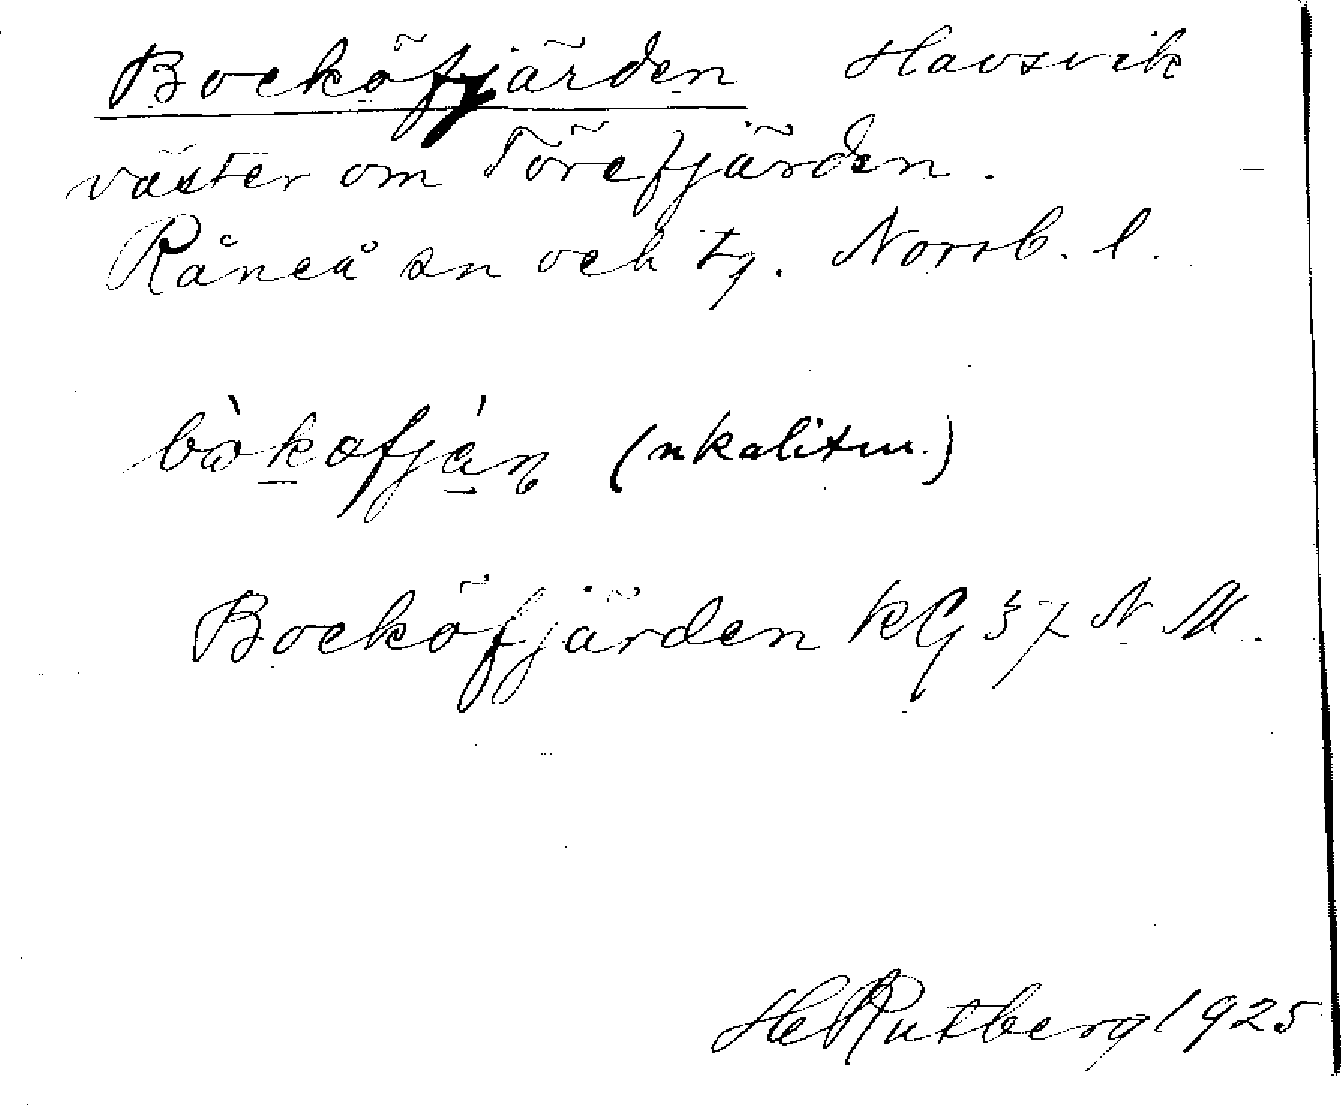 Bocköfjärden Havsvik
väster om Törefjärden.
Råneå sn och tg. Norrb. l.
(nkalixm.)
Bocköfjärden KG 37 N M.
HeRutberg 1925